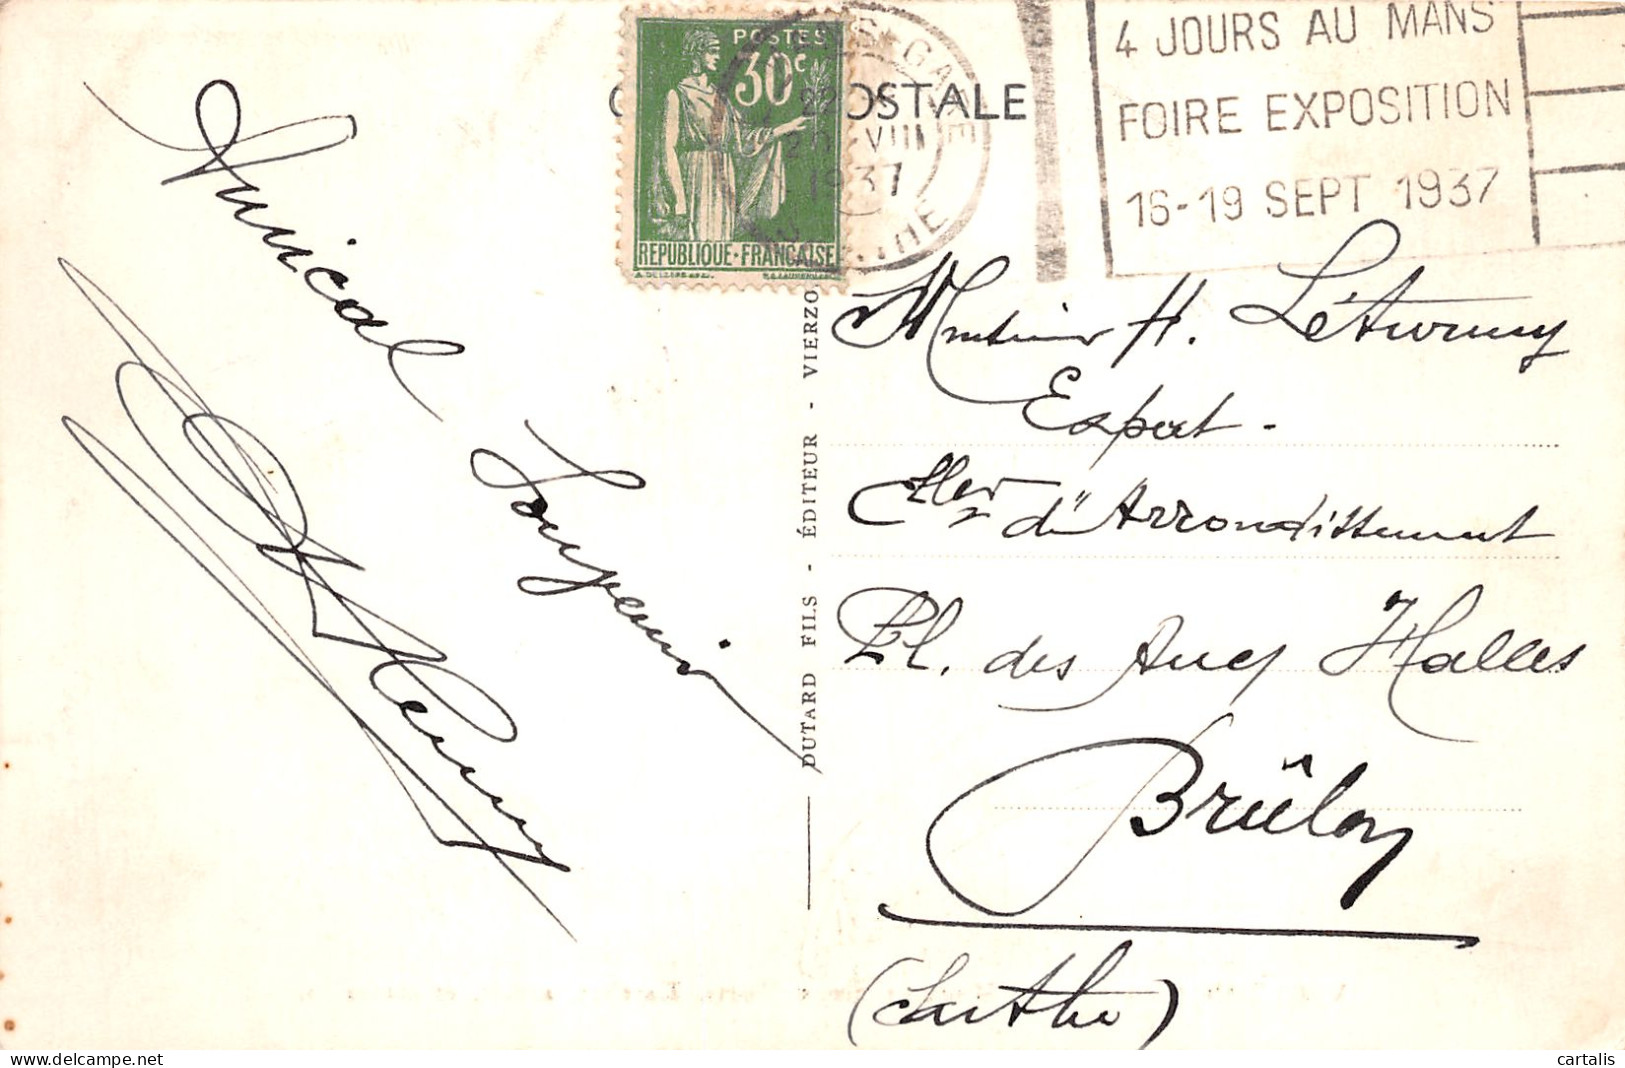 POSTES
30c
REPUBLIQUE·FRANÇAISE
C OSTALE
22
VIII
1937
4 JOURS AU MANS
FOIRE EXPOSITION
16-19 SEPT 1937
Amical
Souvenir
DUTARD FILS - ÉDITEUR - VIERZO
Monsieur H. Létournuy
Expert -
Cller d'Arrondissement
Pl. des Anc Halles
Brûlon
(Sarthe)
cartalis